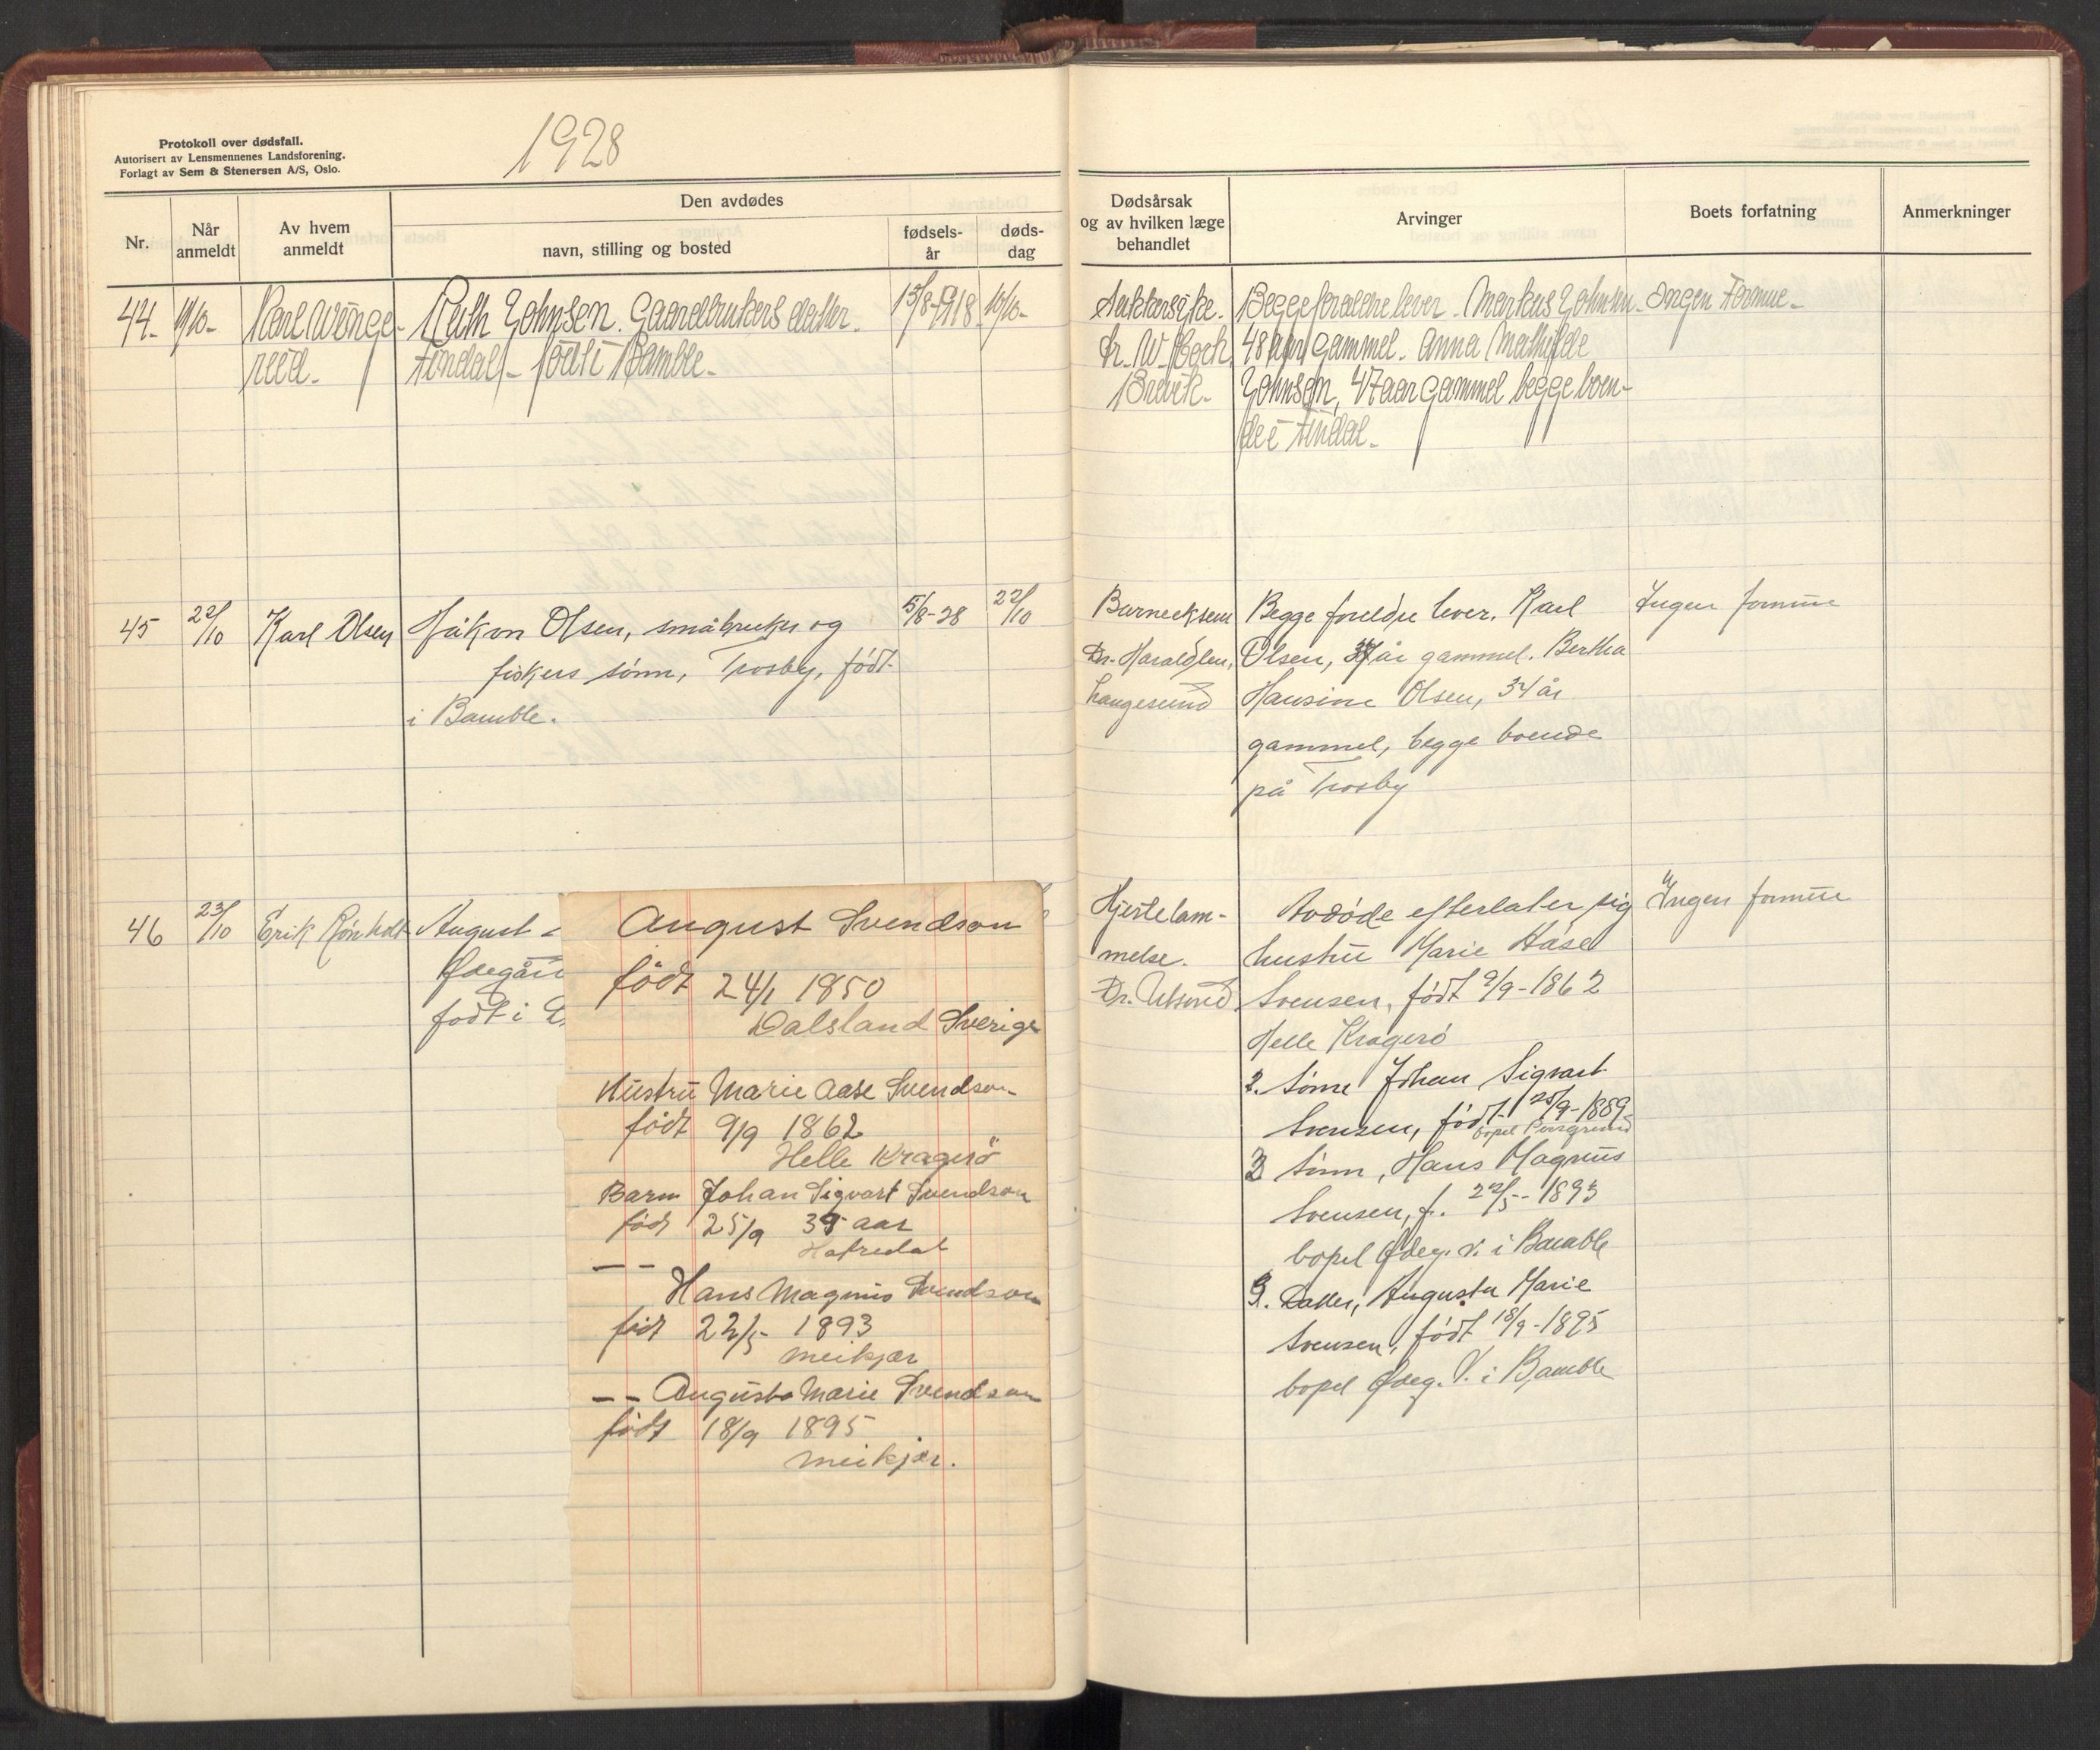 1928
Protokoll over dødsfall.
Autorisert av Lensmennenes Landsforening.
Forlagt av Sem & Stenersen A/S, Oslo.
Nr.
Når anmeldt
Av hvem anmeldt
Den avdødes
navn, stilling og bosted
fødsels-år
døds-dag
Dødsårsak og av hvilken læge behandlet
Arvinger
Boets forfatning
Anmerkninger
44-
Ruth Johnsen. Gaardbrukers datter.
Findal - født i Bamble-
15/8-1918
10/10-
Sukkersyke.
Brevik-
Begge foreldre lever. Markus Johnsen
48 aar gammel. Anna Mathilde
Johnsen, 47 aar gammel begge boen-
de i Findal-
Ingen Formue-
45
22/10
Karl Olsen
Håkon Olsen, småbruker og
fiskers sønn, Trosby, født
i Bamble.
5/8-28
22/10
Dr. Haraldsen,
Langesund
Begge foreldre lever. Karl
Olsen, år gammel. Bertha
Hansine Olsen, 34 år
gammel, begge boende
på Trosby
Ingen formue
46
23/10
Erik Rønholt
August
Ødegår
født i
August Svendson
født 24/1 1850
Dalsland Sverige
Hustru Marie Aase Svendson
født 9/9 1862
Helle Kragerö
Barn Johan Sigvart Svendson
født 25/9 39 aar
— —
Hans Magnus Svendson
født 22/5- 1893
meikjær
— — Augusta Marie Svendson
født 18/9 1895
meikjær.
Hjertelam-
melse.
Avdøde efterlater sig
hustru Marie Håse
Svensen, født 9/9-1862
Helle Kragerö
2. Sønn Johan Sigvart
Svensen, født 25/9-1889
bopel Porsgrund
3 Sønn, Hans Magnus
Svensen, f. 22/5-- 1893
bopel Ødeg. v. i Bamble
Datter, Augusta Marie
Svensen, født 18/9-1895
bopel Ødeg. V. i Bamble
Ingen formue